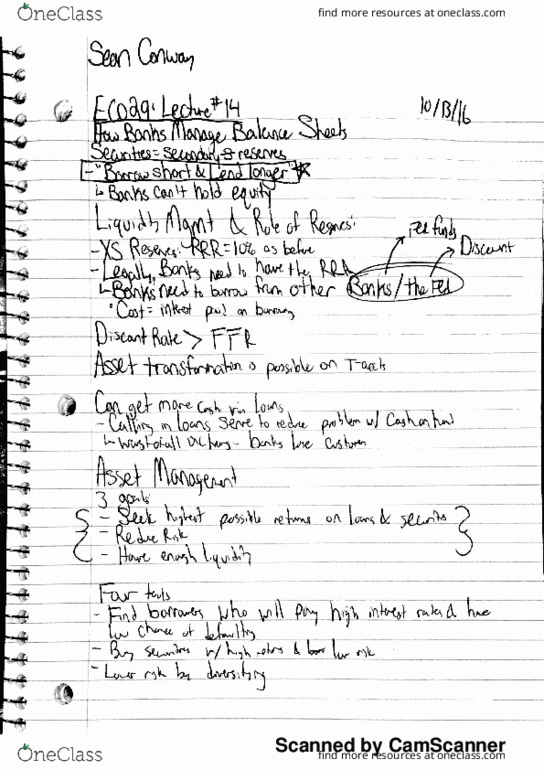 OneClass
find more resources at oneclass.com
Sean Conway
Eco29: Lecture #14
10/13/16
How Banks Manage Balance Sheets
Securities = secondary reserves
- "Borrow short & Lend longer"
↳ Banks can't hold equity
Liquidity Mgmt & Role of Reserves:
Fed funds
Discount
- XS Reserves: RRR = 10% as before
- Legally, Banks need to have the RRR
↳ Banks need to borrow from other Banks/the Fed
Cost = interest paid on borrowing
Discount Rate > FFR
Asset transformation is possible on T-accts
Can get more cash via loans
- Calling in loans serve to reduce problem w/ Cash on hand
↳ Worst of all - banks lose customers
Asset Management
3 goals
- Seek highest possible returns on loans & securities
- Reduce Risk
- Have enough liquidity
Four tools
- Find borrowers who will pay high interest rates & have
low chance of defaulting
- Buy securities w/ high returns & low risk
- Lower risk by diversifying
Scanned by CamScanner
OneClass
find more resources at oneclass.com